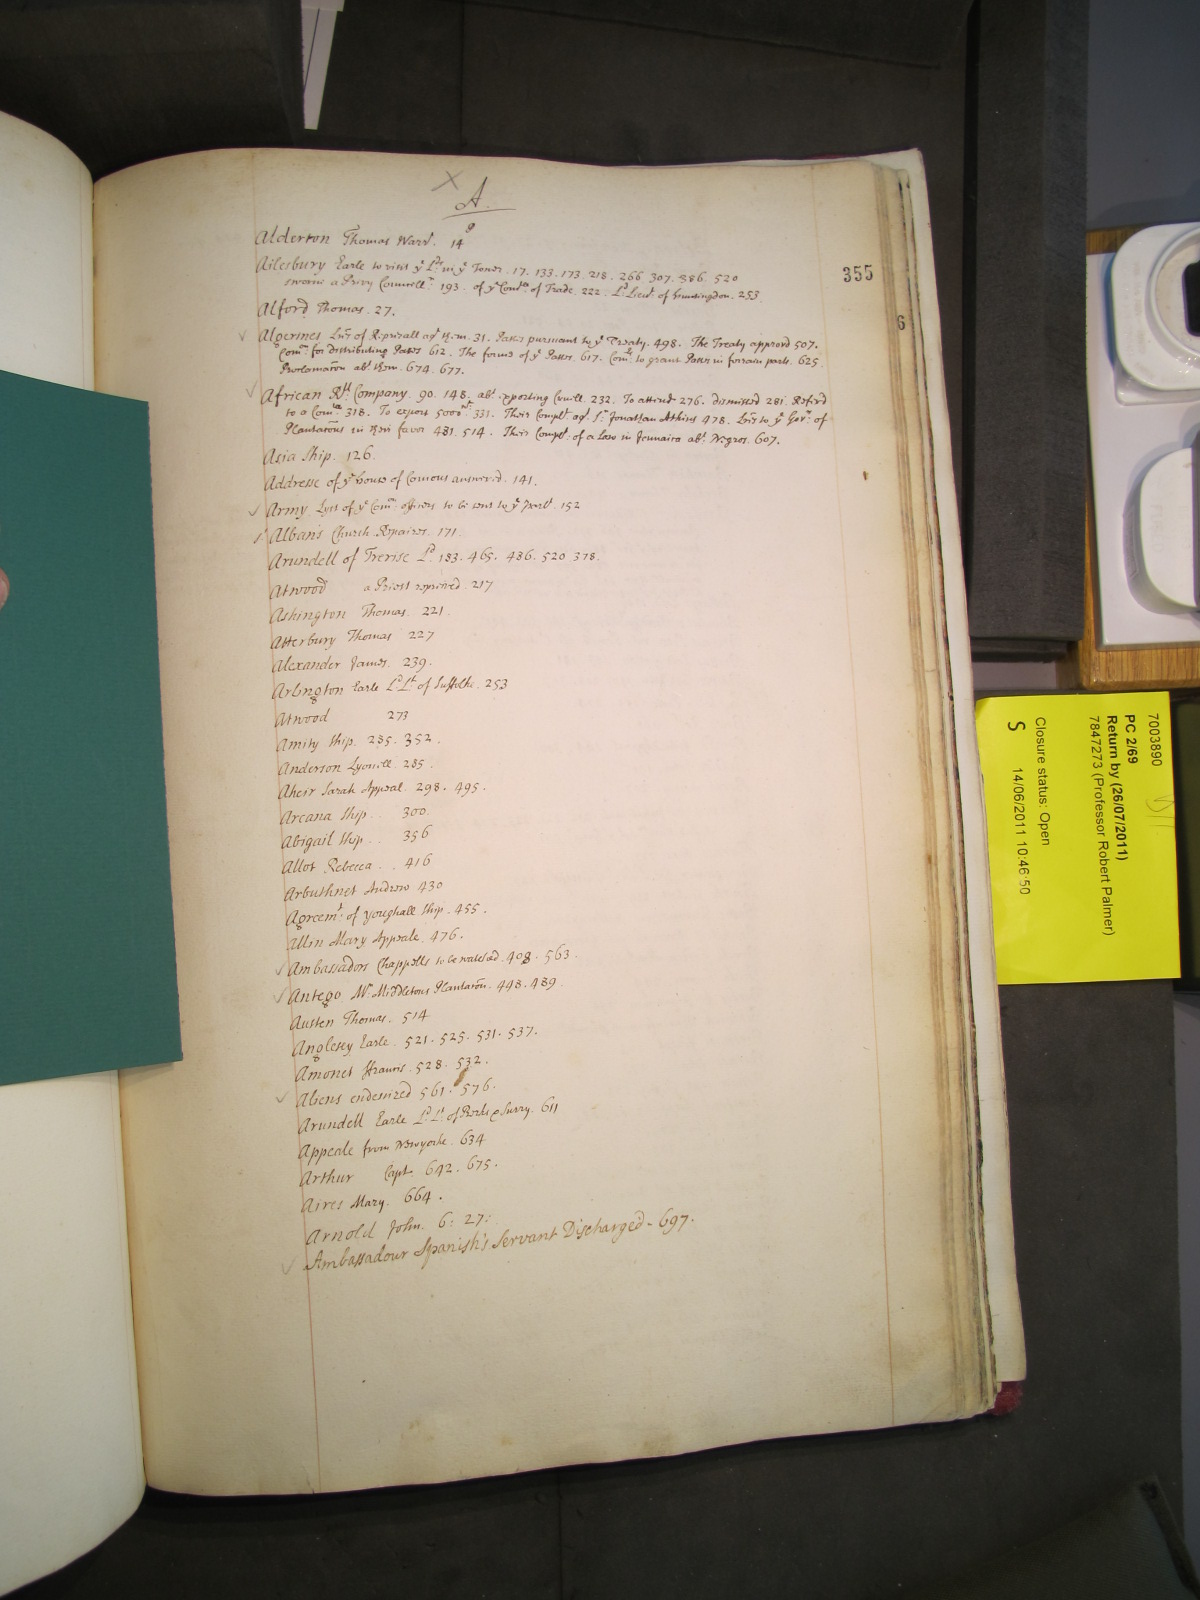 A.
Alderton Thomas Ward. 14
Ailesbury Earle to visit ye Lt in ye Tower. 17. 133. 173. 218. 266. 307. 386. 520
sworne a Privy Councellr. 193. of ye Comtee of Trade. 222. Ld Lieut. of Huntingdon. 253.
355
Alford Thomas. 27.
6
Algerines Lres of Reprisall agt them. 31. Passes pursuant to ye Treaty. 498. The Treaty approvd 507.
Comrs for distributing Passes 612. The forme of ye Passes. 617. Comrs to grant Passes in forrain parts. 625.
Proclamation abt them. 674. 677.
African Rll Company. 90. 148. abt exporting 232. To attend 276. dismissed 281. Referd
to a Comtee 318. To export 5000 331. Their Complt agt Sr Jonathan Atkins 478. Lres to ye Govrs of
Plantations in their favor 481. 514. Their Complt of a Law in Jamaica abt Negros. 607.
Asia Ship. 126.
Addresse of ye house of Comons answered. 141.
Army Lyst of ye Comn officers to be sent to ye Parlt. 152
St Alban's Church Repaires. 171.
Arundell of Trerise Ld. 183. 465. 486. 520 378.
Atwood a Priest reprieved. 217
Ashington Thomas. 221.
Atterbury Thomas 227
Alexander James. 239.
Arlington Earle Ld Lt of Suffolke. 253
Atwood 273
Amity Ship. 285. 352.
Anderson Lyonell. 285.
Aheir Sarah Appeal. 298. 495.
Arcana Ship. 300.
Abigail Ship. 356
Allot Rebecca. 416
Arbuthnet Andrew 430
Agreemt: of Youghall Ship. 455.
Allin Mary Appeale. 476.
Ambassadors Chappells to be watched. 408. 563.
Antego Mr. Middletons Plantation. 448. 489.
Austen Thomas. 514
Anglesey Earle. 521. 525. 531. 537.
Amonet ffrancis. 528. 532.
Aliens endenized 561. 576.
Arundell Earle Ld Lt of Berks & Surry. 611
Appeale from New yorke. 634
Arthur Capt. 642. 675.
Aires Mary. 664.
Arnold John. 6: 27:
Ambassadour Spanish's Servant Discharged - 697.
7003890
PC 2/69
Return by (26/07/2011)
7847273 (Professor Robert Palmer)
Closure status: Open
S 14/06/2011 10:46:50